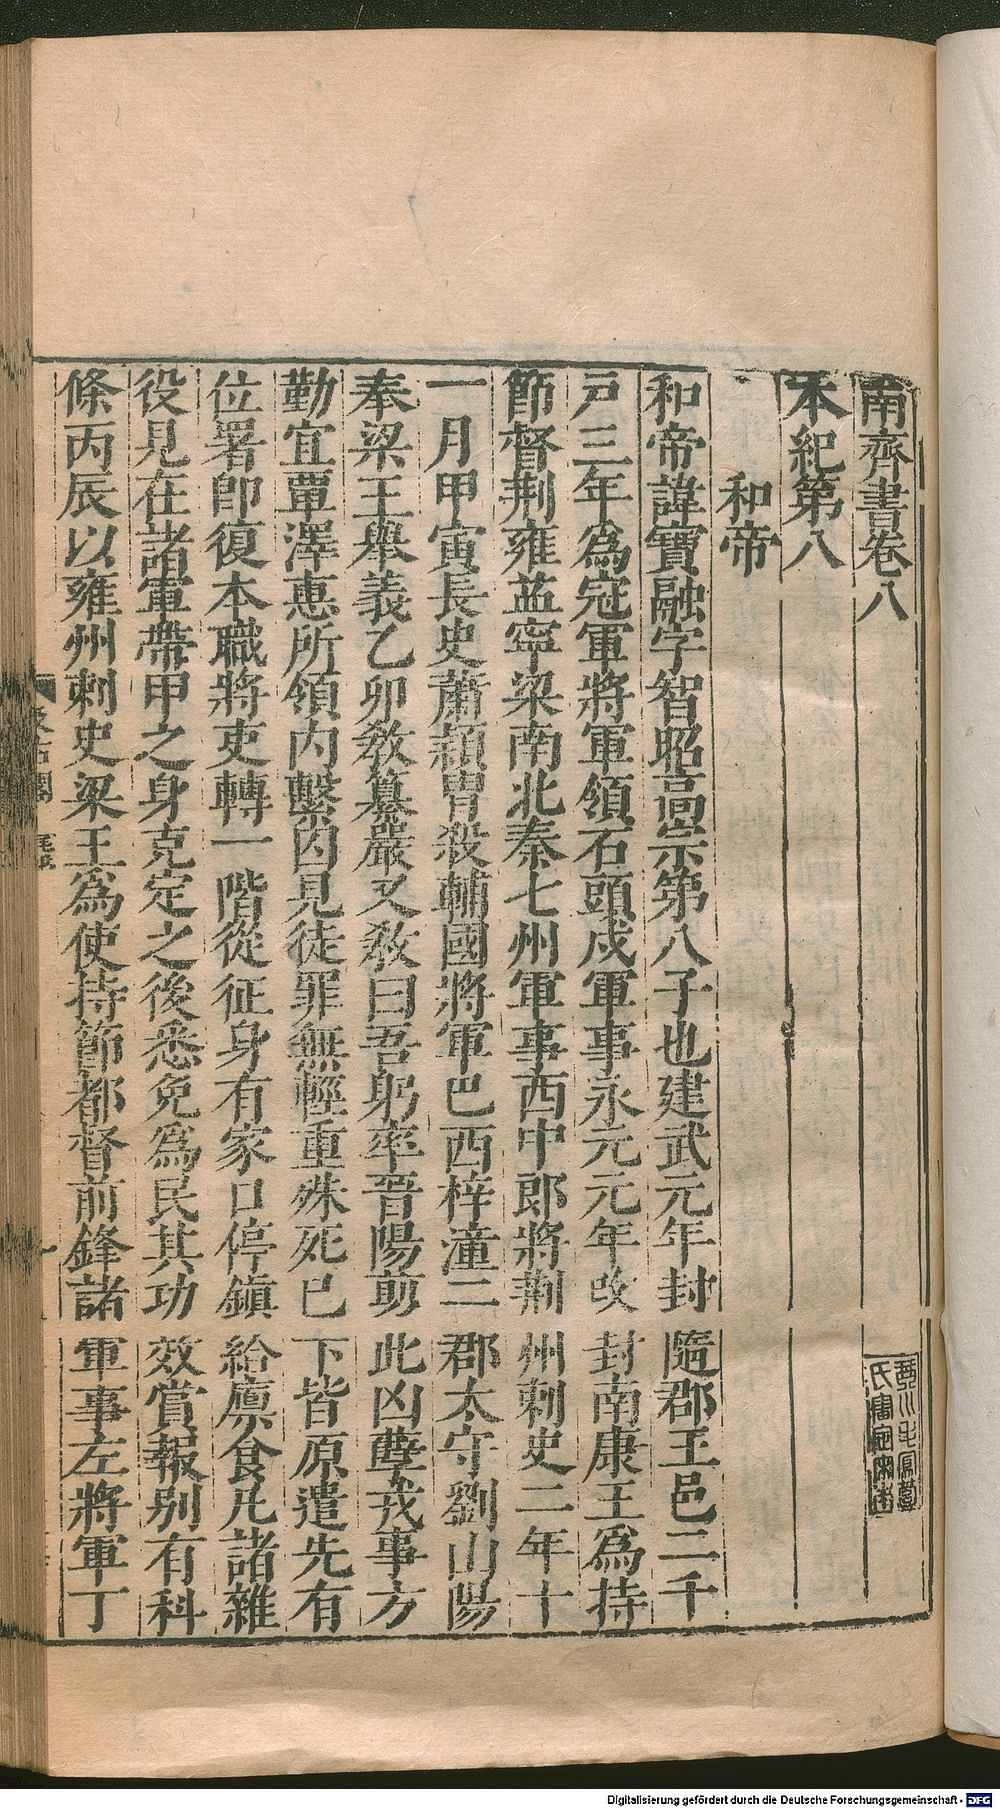 南齊書卷八
本紀第八
和帝
和帝諱寶融字智昭高宗第八子也建武元年封隨郡王邑二千
戸三年為冠軍將軍領石頭戍軍事永元元年改封南康王為持
節督荆雍益寧梁南北秦七州軍事西中郎將荆州刺史二年十
一月甲寅長史蕭穎冑殺輔國將軍巴西梓潼二郡太守劉山陽
奉梁王舉義乙卯教纂嚴又教曰吾躬率晉陽翦此凶孽戎事方
勤宜覃澤惠所領内繫囚見徒罪無輕重殊死已下皆原遣先有
位署卽復本職將吏轉一階從征身有家口停鎮給廪食凡諸雜
役見在諸軍帶甲之身克定之後悉免為民其功效賞報别有科
條丙辰以雍州刺史梁王為使持節都督前鋒諸軍事左將軍丁
琴川毛鳳苞
氏審定宋本
Digitalisierung gefördert durch die Deutsche Forschungsgemeinschaft - DFG